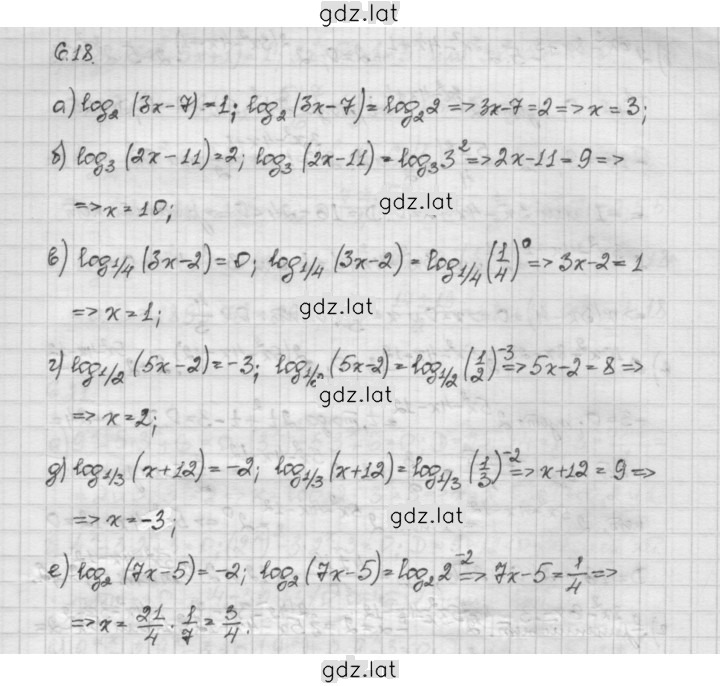 gdz.lat
6.18.
а) log₂ (3x-7)=1; log₂ (3x-7)=log₂2 => 3x-7=2 => x=3;
б) log₃ (2x-11)=2; log₃ (2x-11)=log₃3² => 2x-11=9 =>
gdz.lat
=> x=10;
в) log₁/₄ (3x-2)=0; log₁/₄ (3x-2)=log₁/₄ (1/4)⁰ => 3x-2=1
gdz.lat
=> x=1;
г) log₁/₂ (5x-2)=-3; log₁/₂ (5x-2)=log₁/₂ (1/2)⁻³ => 5x-2=8 =>
gdz.lat
=> x=2;
д) log₁/₃ (x+12)=-2; log₁/₃ (x+12)=log₁/₃ (1/3)⁻² => x+12=9 =>
gdz.lat
=> x=-3;
е) log₂ (7x-5)=-2; log₂ (7x-5)=log₂2⁻² => 7x-5=1/4 =>
=> x=21/4·1/7=3/4.
gdz.lat